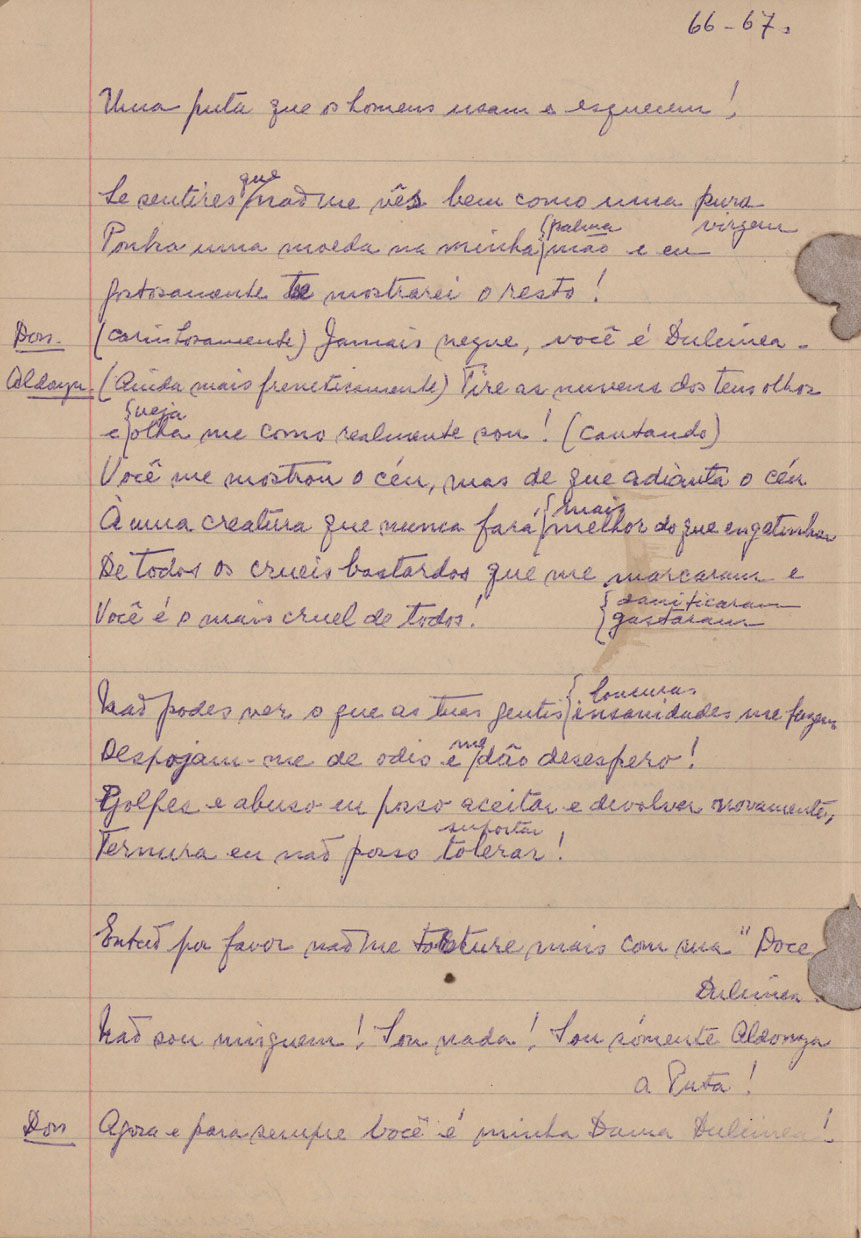 66-67.
Uma puta que os homens usam e esquecem!
que
Se sentires não me vês bem como uma pura
{palma virgem
Ponha uma moeda na minha mão e eu
gostosamente te mostrarei o resto!
Don. (carinhosamente) Jamais negue, você é Dulcinea.
Aldonza. (Ainda mais freneticamente) Tire as nuvens dos teus olhos
{veja
e olha me como realmente sou! (cantando)
Você me mostrou o céu, mas de que adianta o céu
{mais
À uma creatura que nunca fará melhor do que engatinhar
De todos os crueis bastardos que me marcaram e
{danificaram
Você é o mais cruel de todos! {gastaram
{loucuras
Não podes ver o que as tuas gentis insanidades me fazem
me
Despojam-me de odio e dão desespero!
Golpes e abuso eu posso aceitar e devolver novamente,
suportar
Ternura eu não posso tolerar!
Então por favor não me torture mais com sua "Doce
Dulcinea.
Não sou ninguem! Sou nada! Sou sómente Aldonza
a Puta!
Don Agora e para sempre você é minha Dama Dulcinea!